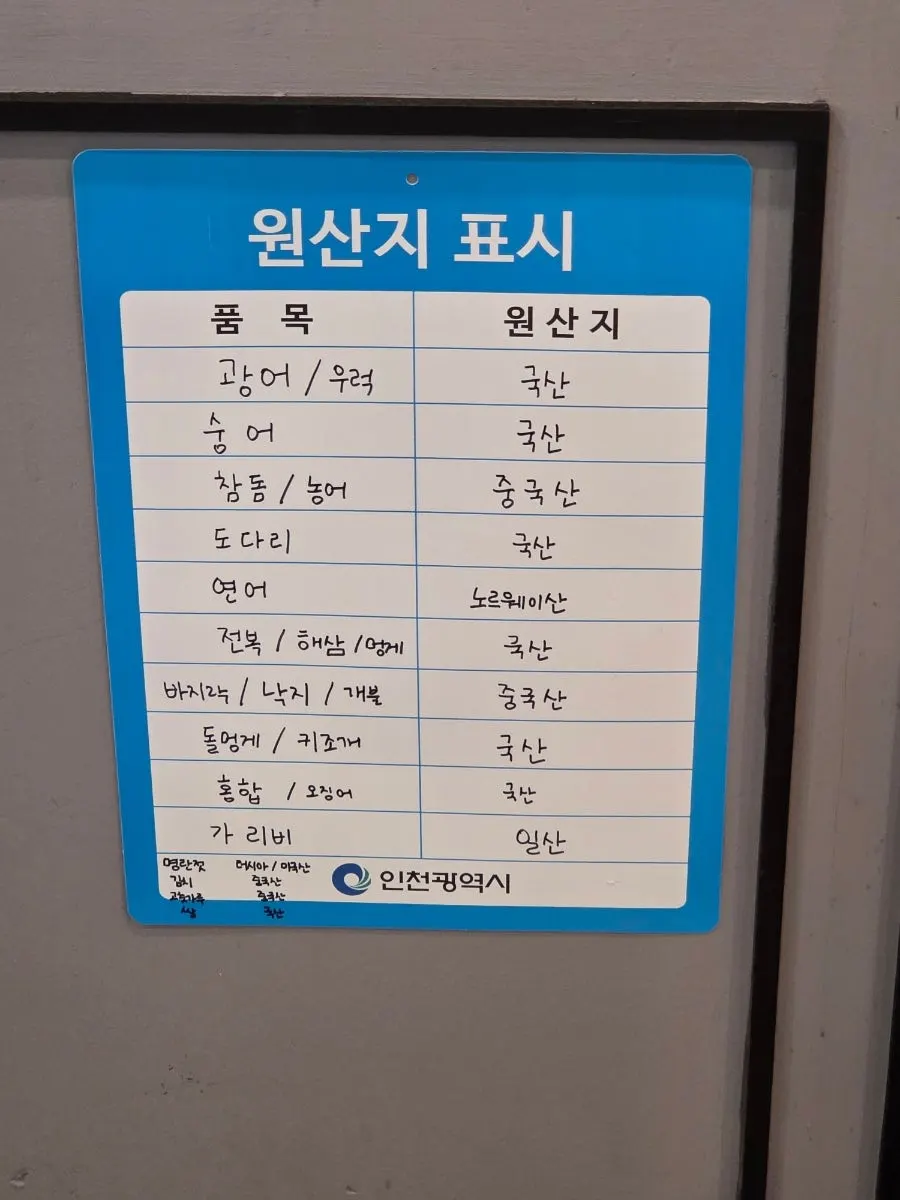 원산지 표시
품 목 원 산 지
광어 / 우럭 국산
숭어 국산
참돔 / 농어 중국산
도다리 국산
연어 노르웨이산
전복 / 해삼 / 멍게 국산
바지락 / 낙지 / 개불 중국산
돌멍게 / 키조개 국산
홍합 / 오징어 국산
가리비 일산
명란젓 러시아 / 미국산
김치 중국산
고춧가루 중국산
쌀 국산
인천광역시